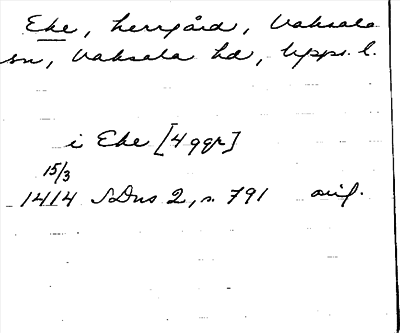 Eke, herrgård, Vaksala
sn, Vaksala hd, Upps. l.
i Eke [4 ggr]
15/3
1414 SDns 2, s. 791 orig.